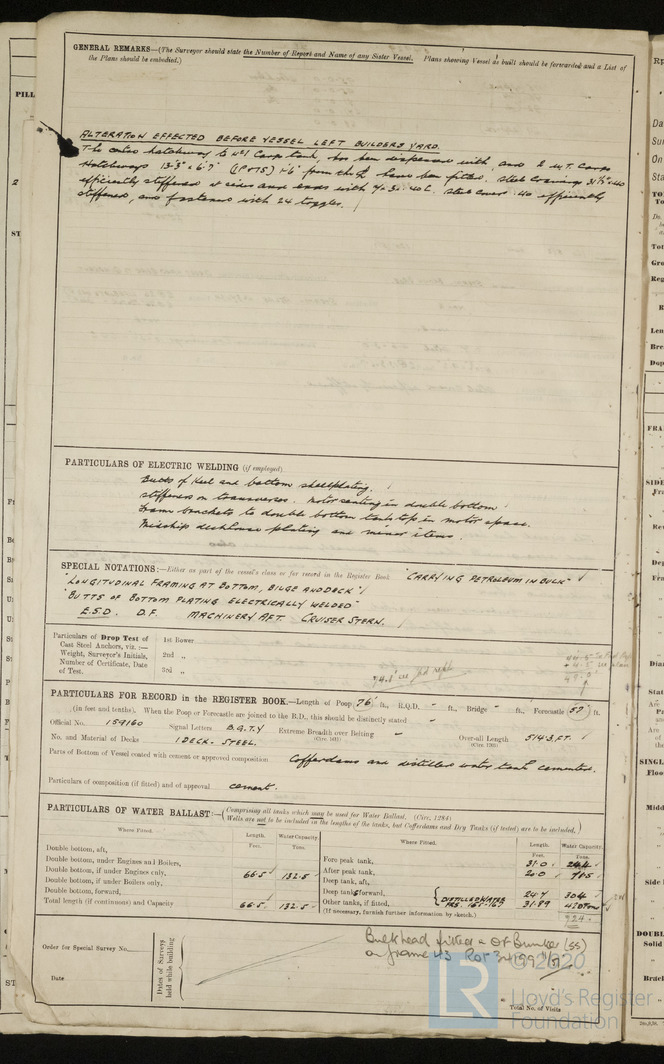 GENERAL REMARKS—(The Surveyor should state the Number of Report and Name of any Sister Vessel. Plans showing Vessel as built should be forwarded and a List of
the Plans should be embodied.)
ALTERATION EFFECTED BEFORE VESSEL LEFT BUILDERS YARD.
hatchway to No1 Cargo tank, has been dispensed with, and 2 W.T. Cargo
Hatchways 13'3" x 6'7" (P & S) from the have been fitted. Steel Coamings 31½" x .40
efficiently stiffened at sides and ends with Steel cover .40 efficiently
stiffened, and fastened with 24 toggles.
PARTICULARS OF ELECTRIC WELDING (if employed)
Butts of Keel and bottom shellplating.
stiffeners on transverses. Motor seating in double bottom
Frame brackets to double bottom tank top in motor space.
Midship deckhouse plating and minor items.
SPECIAL NOTATIONS:—Either as part of the vessel's class or for record in the Register Book "CARRYING PETROLEUM IN BULK"
"LONGITUDINAL FRAMING AT BOTTOM, BILGE AND DECK"
"BUTTS OF BOTTOM PLATING ELECTRICALLY WELDED"
E.S.D. D.F. MACHINERY AFT. CRUISER STERN.
Particulars of Drop Test of
Cast Steel Anchors, viz. :—
Weight, Surveyor's Initials,
Number of Certificate, Date
of Test.
1st Bower
2nd "
3rd "
PARTICULARS FOR RECORD in the REGISTER BOOK.—Length of Poop 76 ft., R.Q.D. " ft., Bridge " ft., Forecastle 57 ft.
(in feet and tenths). When the Poop or Forecastle are joined to the B.D., this should be distinctly stated "
Official No. 159160 Signal Letters B.Q.T.Y Extreme Breadth over Belting " Over-all Length 514.3 FT.
No. and Material of Decks 1 DECK. STEEL.
Parts of Bottom of Vessel coated with cement or approved composition Cofferdams and distilled water tank cemented.
Particulars of composition (if fitted) and of approval cement.
PARTICULARS OF WATER BALLAST:—(Comprising all tanks which may be used for Water Ballast. (Circ. 1284)
Wells are not to be included in the lengths of the tanks, but Cofferdams and Dry Tanks (if tested) are to be included.)
Where Fitted. Length. Water Capacity. Where Fitted. Length. Water Capacity.
Feet. Tons. Feet. Tons.
Double bottom, aft,
Double bottom, under Engines and Boilers,
Double bottom, if under Engines only, 66.5 132.5
Double bottom, if under Boilers only,
Double bottom, forward,
Total length (if continuous) and Capacity 66.5 132.5
Fore peak tank, 31.0
After peak tank, 20.0
Deep tank, aft,
Deep tanks forward, 24.7 304
Other tanks, if fitted, DISTILLED WATER FRS. 165-167 31.89
(If necessary, furnish further information by sketch.)
Order for Special Survey No.
Date
Dates of Surveys
held while building
Bulkhead fitted in OF Bunker (SS)
@ frame 43
Total No. of Visits
LR
© 2020
Lloyd's Register
Foundation